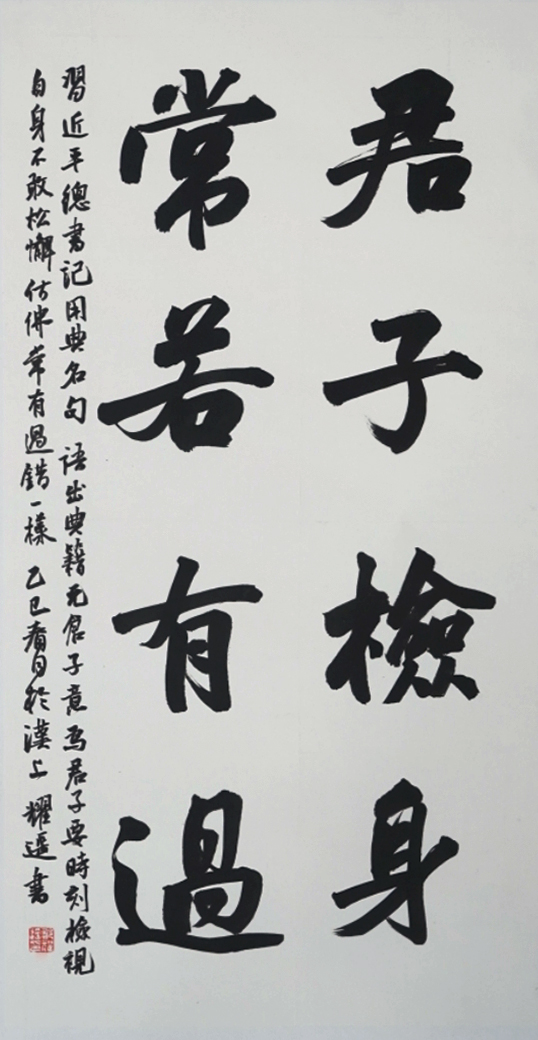 君子檢身
常若有過
習近平總書記用典名句 語出典籍亢倉子意為君子要時刻檢視
自身不敢松懈仿佛常有過錯一樣 乙巳春日於漢上 耀 書